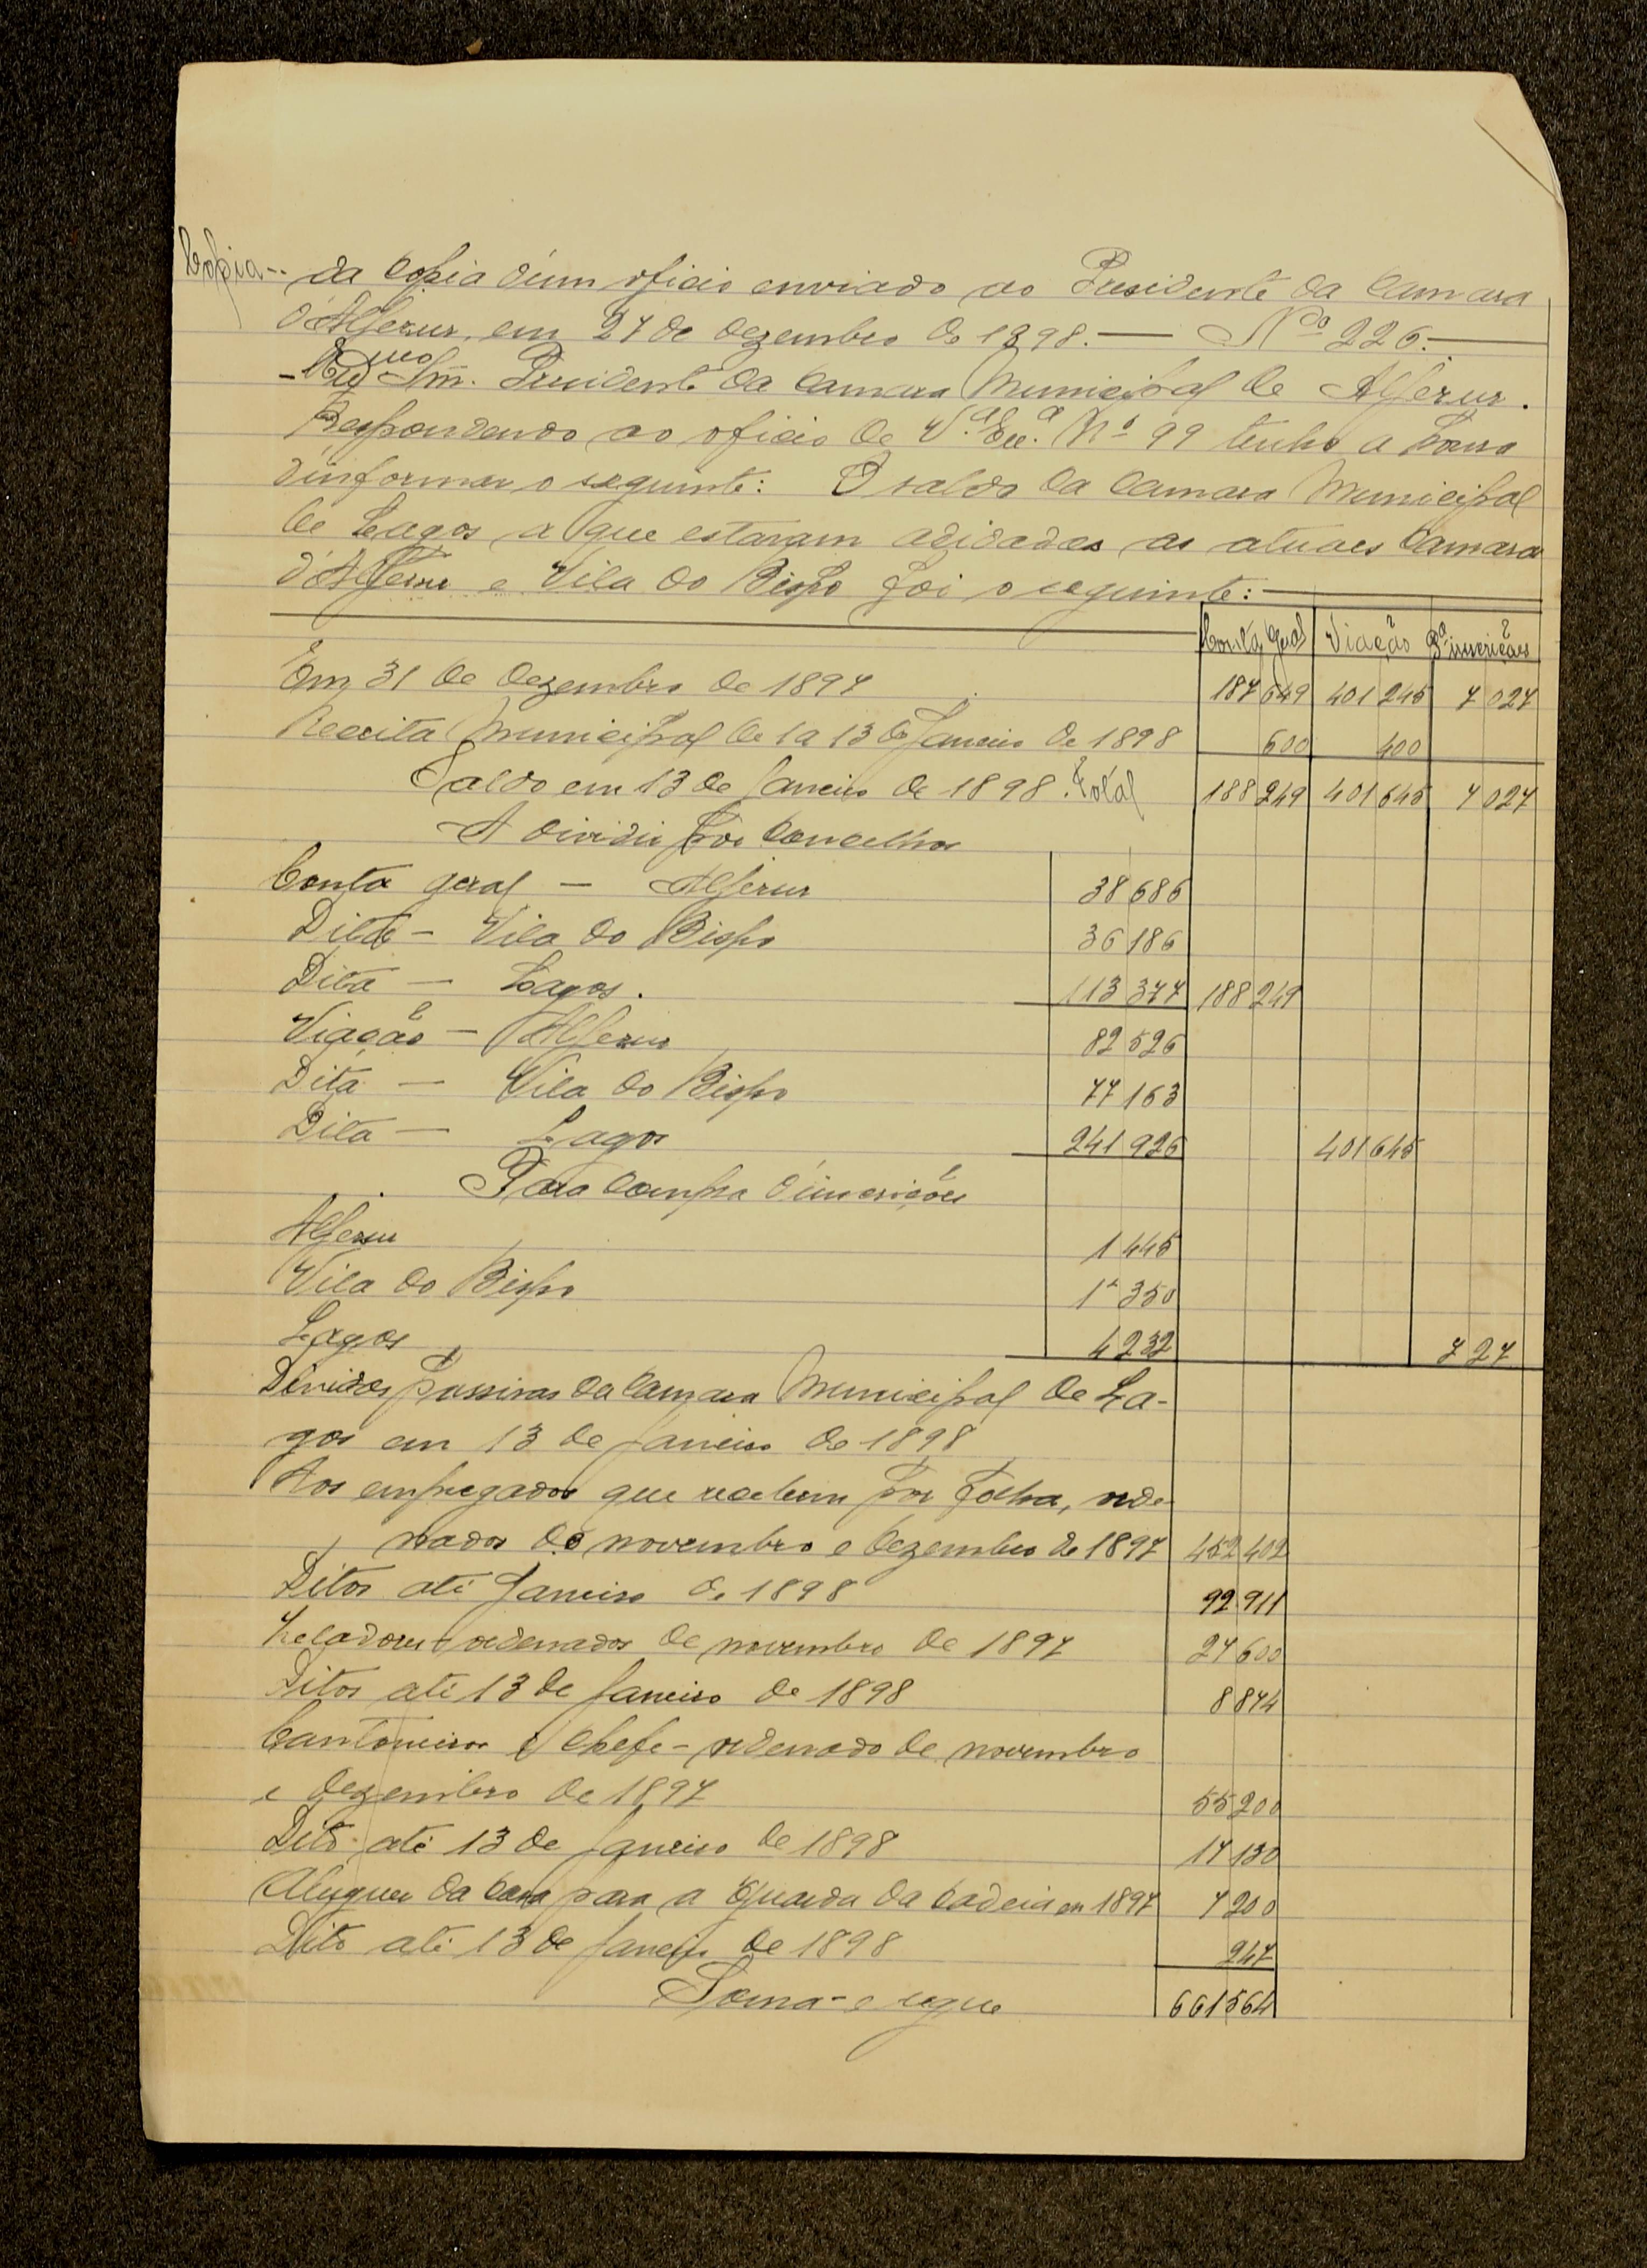 Copia -- da Copia dum oficio enviado ao Presidente da Camara
d'Aljezur, em 27 de Dezembro de 1898. — Nº 226. —
Exmo Snr. Presidente da Camara Municipal de Aljezur.
Respondendo ao oficio de V.ª Ex.ª Nº 99 tenho a honra
d'informar o seguinte: O saldo da Camara Municipal
de Lagos a que estavam adidadas as atuaes Camaras
d'Aljezur e Vila do Bispo foi o seguinte: —
Conta geral Viação Pª inscrições
Em 31 de Dezembro de 1897 187 649 401 245 7 027
Receita Municipal de 1 a 13 de Janeiro de 1898 600 400
Saldo em 13 de Janeiro de 1898. Total 188 249 401 645 7 027
A dividir por Concelhos
Conta geral — Aljezur 38 686
Dita — Vila do Bispo 36 186
Dita — Lagos. 113 377 188 249
Viação — Aljezur 82 526
Dita — Vila do Bispo 77 163
Dita — Lagos 241 926 401 645
Para Compra d'inscrições
Aljezur 1 445
Vila do Bispo 1 350
Lagos 4 232 7 27
Dividas passivas da Camara Municipal de La-
gos em 13 de Janeiro de 1898
Aos empregados que recebem por folha, orde-
nados de novembro e Dezembro de 1897 452 402
Ditos até Janeiro de 1898 92 911
Zeladores - ordenados de novembro de 1897 27 600
Ditos até 13 de Janeiro de 1898 8 874
Cantoneiros e chefe - ordenado de novembro
e Dezembro de 1897 55 200
Dito até 13 de Janeiro de 1898 17 130
Aluguer da Casa para a Guarda da Cadeia em 1897 7 200
Dito até 13 de Janeiro de 1898 247
Soma - e segue 661 564